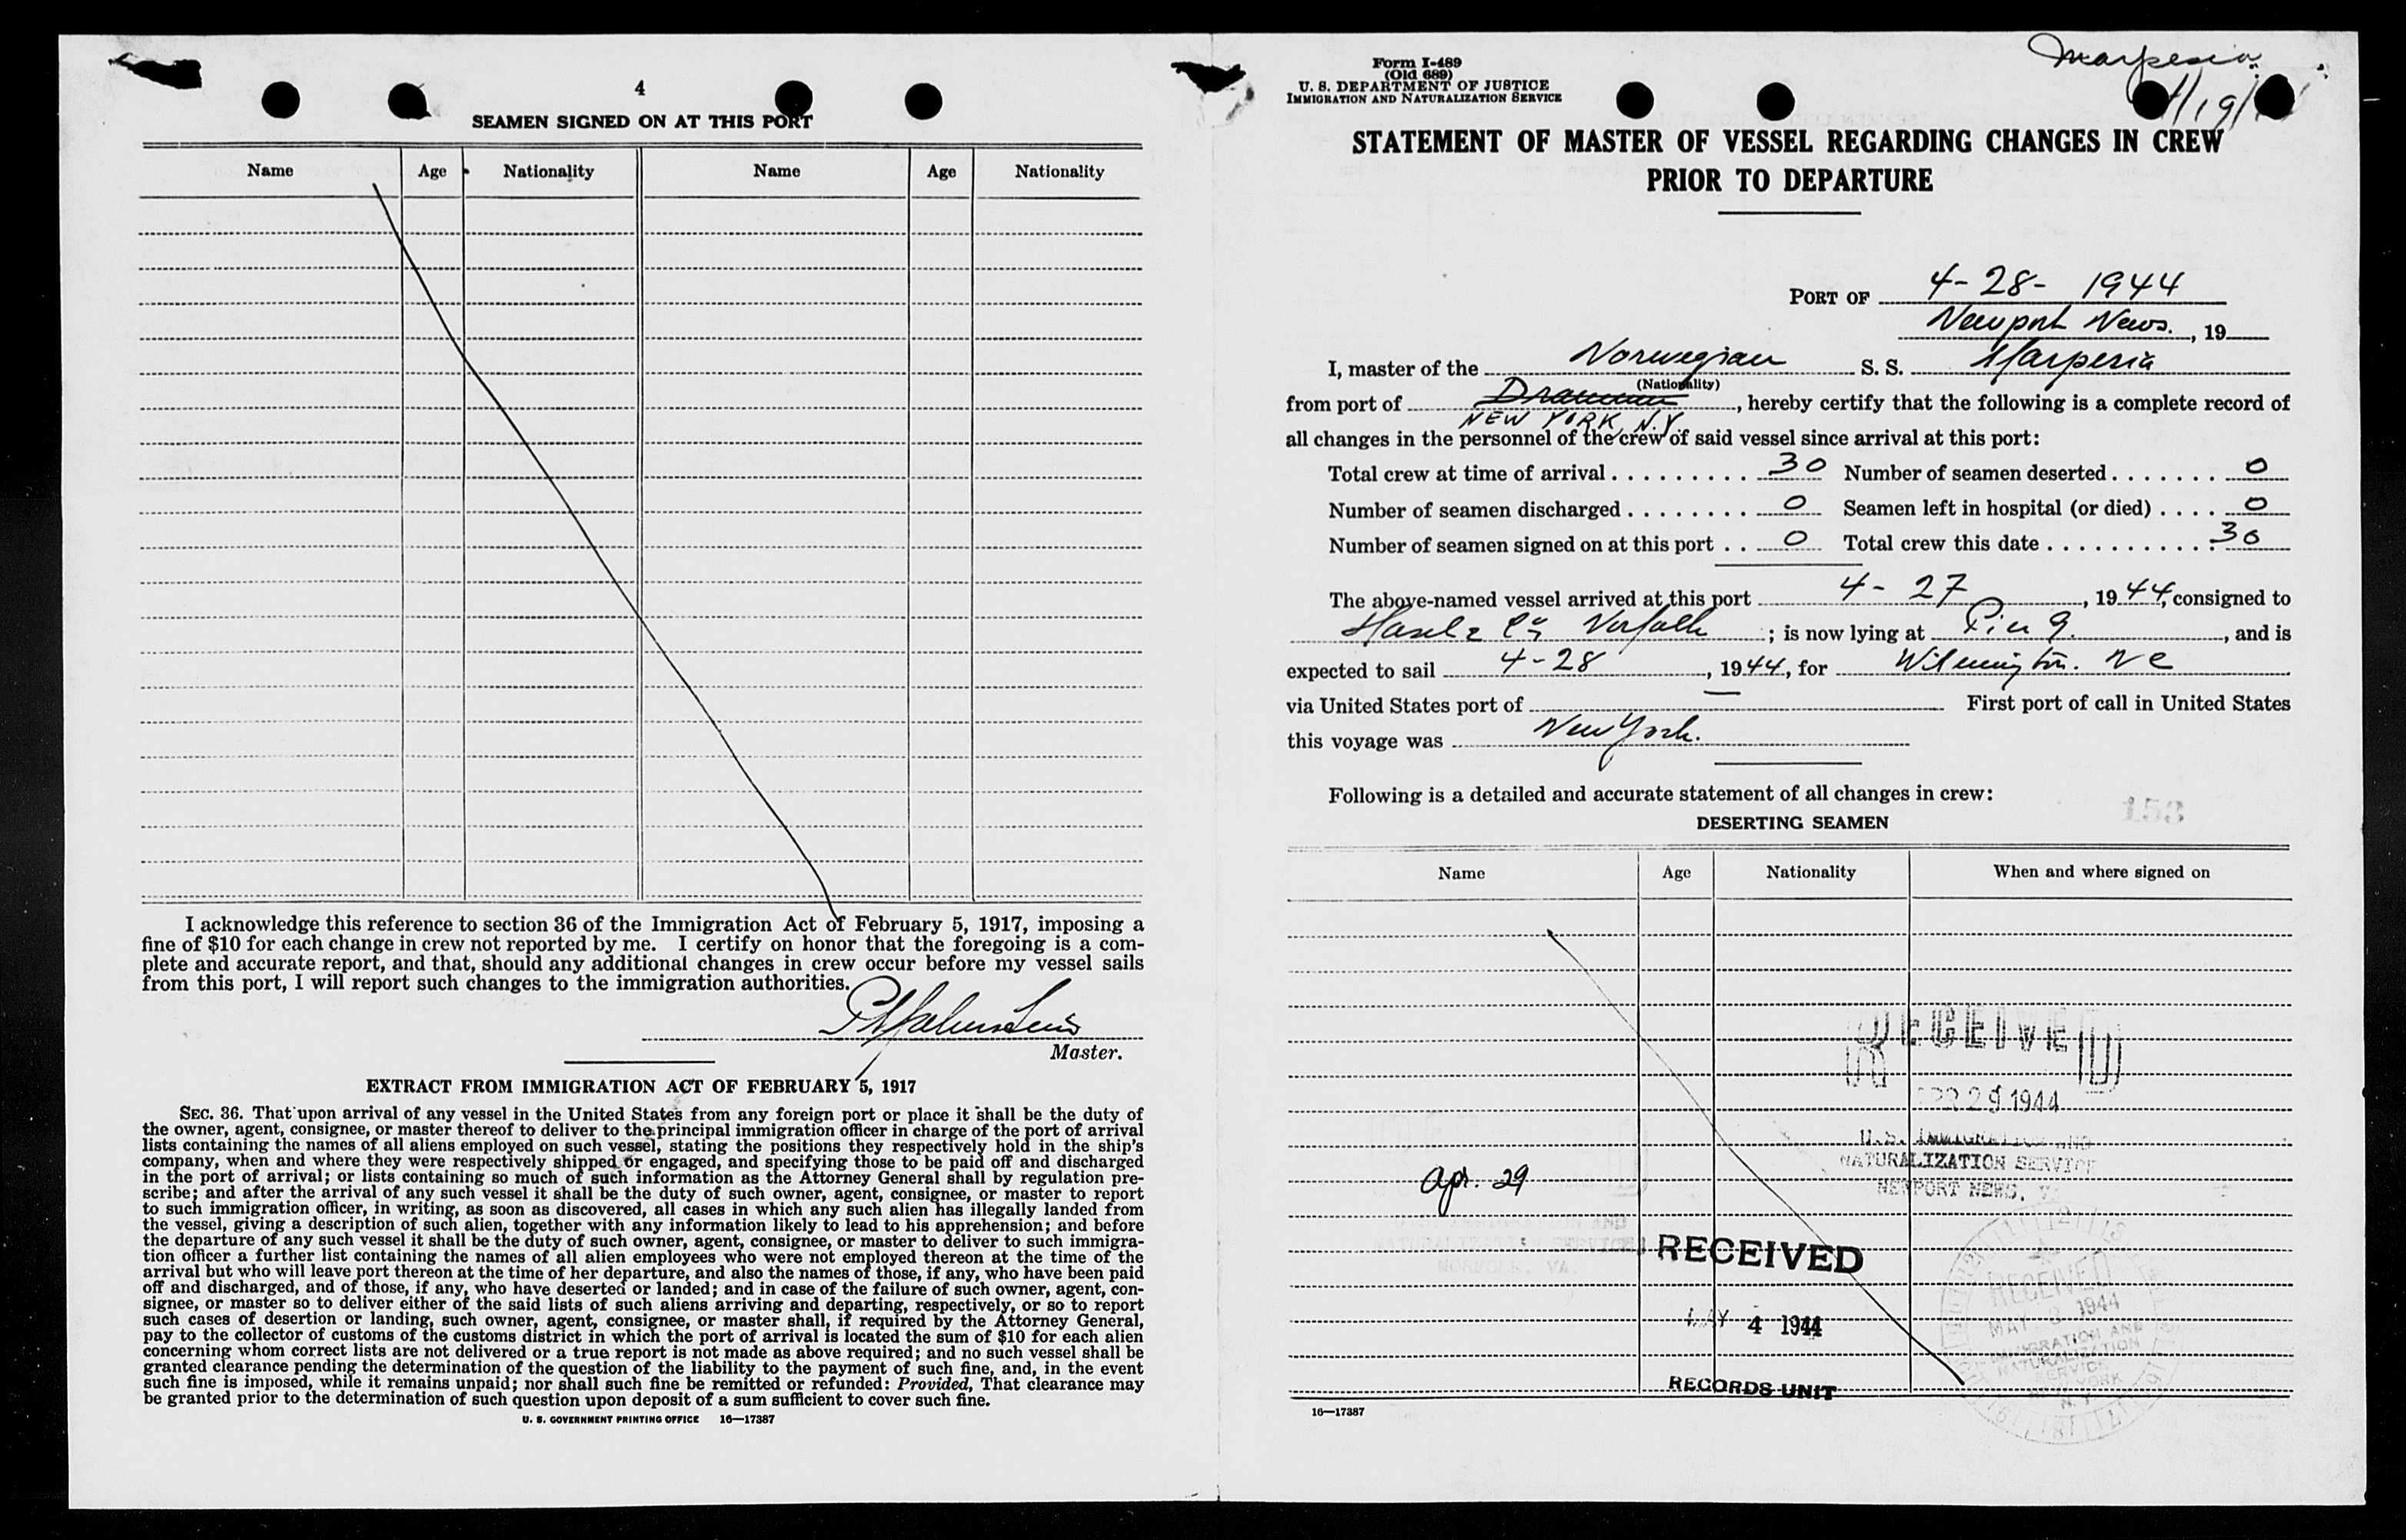 4
SEAMEN SIGNED ON AT THIS PORT
Name Age Nationality Name Age Nationality
I acknowledge this reference to section 36 of the Immigration Act of February 5, 1917, imposing a
fine of $10 for each change in crew not reported by me. I certify on honor that the foregoing is a com-
plete and accurate report, and that, should any additional changes in crew occur before my vessel sails
from this port, I will report such changes to the immigration authorities.
Master.
EXTRACT FROM IMMIGRATION ACT OF FEBRUARY 5, 1917
SEC. 36. That upon arrival of any vessel in the United States from any foreign port or place it shall be the duty of
the owner, agent, consignee, or master thereof to deliver to the principal immigration officer in charge of the port of arrival
lists containing the names of all aliens employed on such vessel, stating the positions they respectively hold in the ship's
company, when and where they were respectively shipped or engaged, and specifying those to be paid off and discharged
in the port of arrival; or lists containing so much of such information as the Attorney General shall by regulation pre-
scribe; and after the arrival of any such vessel it shall be the duty of such owner, agent, consignee, or master to report
to such immigration officer, in writing, as soon as discovered, all cases in which any such alien has illegally landed from
the vessel, giving a description of such alien, together with any information likely to lead to his apprehension; and before
the departure of any such vessel it shall be the duty of such owner, agent, consignee, or master to deliver to such immigra-
tion officer a further list containing the names of all alien employees who were not employed thereon at the time of the
arrival but who will leave port thereon at the time of her departure, and also the names of those, if any, who have been paid
off and discharged, and of those, if any, who have deserted or landed; and in case of the failure of such owner, agent, con-
signee, or master so to deliver either of the said lists of such aliens arriving and departing, respectively, or so to report
such cases of desertion or landing, such owner, agent, consignee, or master shall, if required by the Attorney General,
pay to the collector of customs of the customs district in which the port of arrival is located the sum of $10 for each alien
concerning whom correct lists are not delivered or a true report is not made as above required; and no such vessel shall be
granted clearance pending the determination of the question of the liability to the payment of such fine, and, in the event
such fine is imposed, while it remains unpaid; nor shall such fine be remitted or refunded: Provided, That clearance may
be granted prior to the determination of such question upon deposit of a sum sufficient to cover such fine.
U. S. GOVERNMENT PRINTING OFFICE 16—17387
Marpesia
Form I-489
(Old 689)
U. S. DEPARTMENT OF JUSTICE
IMMIGRATION AND NATURALIZATION SERVICE
STATEMENT OF MASTER OF VESSEL REGARDING CHANGES IN CREW
PRIOR TO DEPARTURE
PORT OF 4-28- 1944
Newport News., 19
I, master of the Norwegian S. S. Marpesia
(Nationality)
from port of , hereby certify that the following is a complete record of
NEW YORK, N.Y.
all changes in the personnel of the crew of said vessel since arrival at this port:
Total crew at time of arrival . . . . . . . . . . 30 Number of seamen deserted . . . . . . . 0
Number of seamen discharged . . . . . . . . 0 Seamen left in hospital (or died) . . . . 0
Number of seamen signed on at this port . . 0 Total crew this date . . . . . . . . . . . 30
The above-named vessel arrived at this port 4- 27, 1944, consigned to
Norfolk; is now lying at Pier 9., and is
expected to sail 4-28, 1944, for Wilmington. NC
via United States port of — First port of call in United States
this voyage was New York.
Following is a detailed and accurate statement of all changes in crew:
153
DESERTING SEAMEN
Name Age Nationality When and where signed on
RECEIVED
APR 29 1944
U.S. IMMIGRATION AND
NATURALIZATION SERVICE
NEWPORT NEWS, VA.
Apr. 29
IMMIGRATION AND
NATURALIZATION SERVICE
NORFOLK, VA.
RECEIVED
MAY 4 1944
RECORDS UNIT
RECEIVED
MAY 3 1944
IMMIGRATION AND
NATURALIZATION
SERVICE
NEW YORK
N. Y.
16—17387